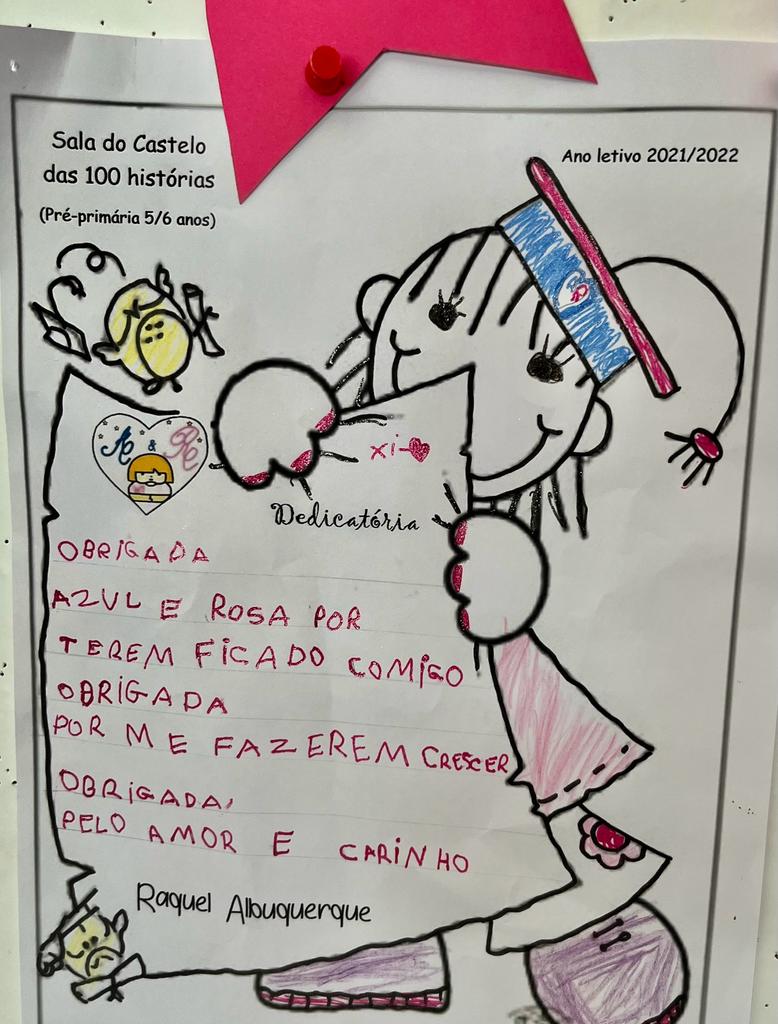 Sala do Castelo
das 100 histórias
(Pré-primária 5/6 anos)
Ano letivo 2021/2022
&
xi-
Dedicatória
OBRIGADA
AZUL E ROSA POR
TEREM FICADO COMIGO
OBRIGADA
POR ME FAZEREM CRESCER
OBRIGADA,
PELO AMOR E CARINHO
Raquel Albuquerque